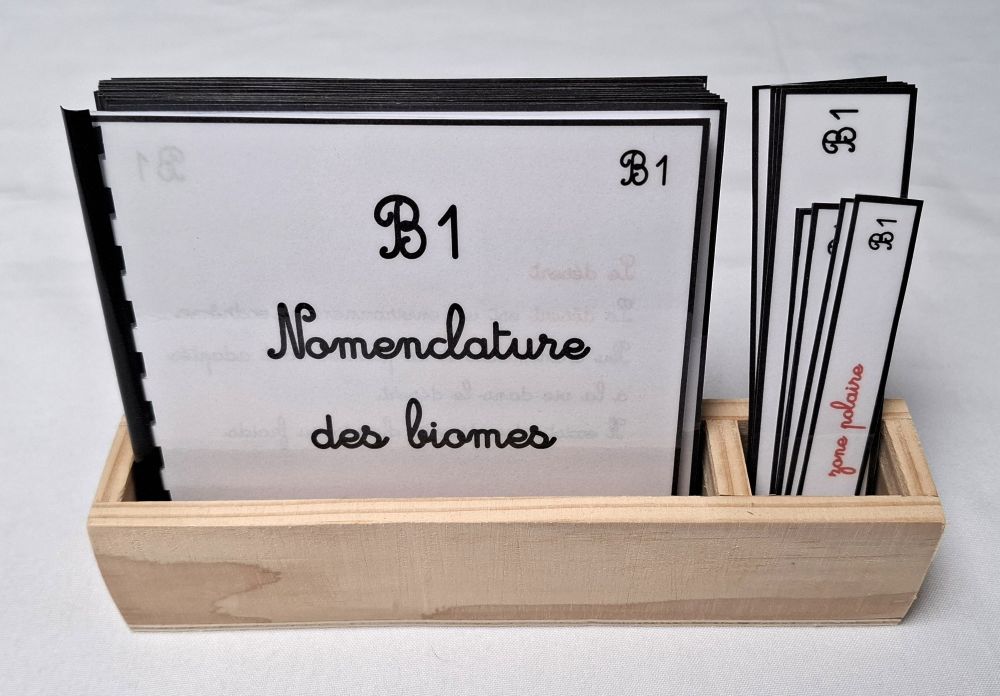 B1
B1
Nomenclature
des biomes
B1
B1
zone polaire